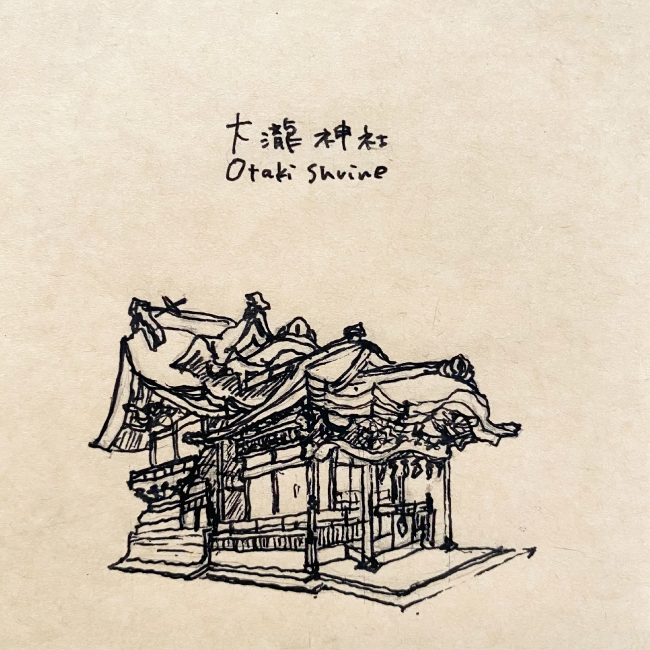 大瀧神社
Otaki shrine